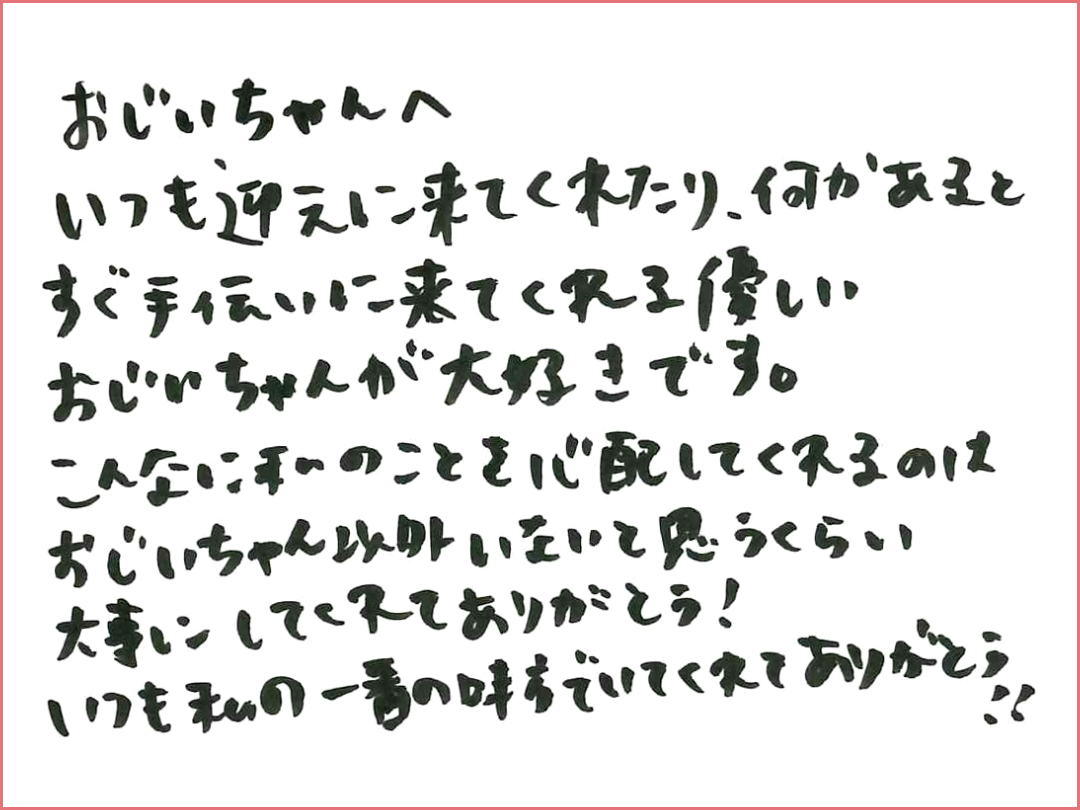 おじいちゃんへ
いつも迎えに来てくれたり、何かあると
すぐ手伝いに来てくれる優しい
おじいちゃんが大好きです。
こんなに私のことを心配してくれるのは
おじいちゃん以外いないと思うくらい
大事にしてくれてありがとう!
いつも私の一番の味方でいてくれてありがとう!!